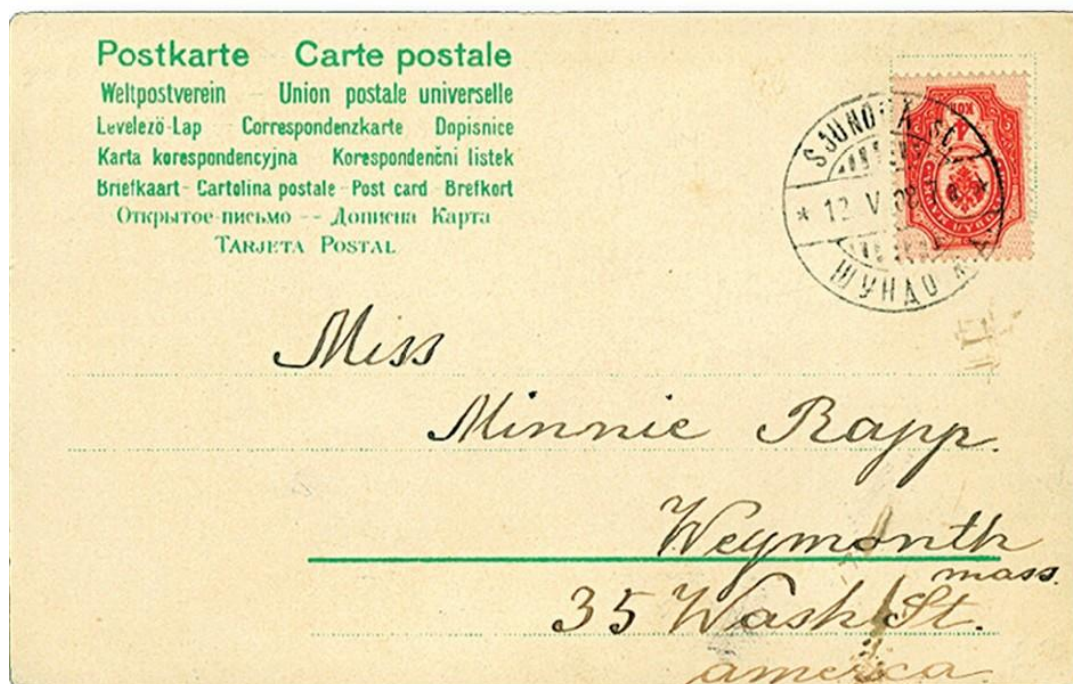 Postkarte Carte postale
Weltpostverein – Union postale universelle
Levelező-Lap – Correspondenzkarte Dopisnice
Karta korespondencyjna Korespondenční listek
Briefkaart - Cartolina postale - Post card - Brefkort
Открытое письмо -- Дописна Карта
TARJETA POSTAL
12 V 08
ШУНДО
Miss
Minnie Rapp.
Weymonth
mass.
35 Wash St.
amerca